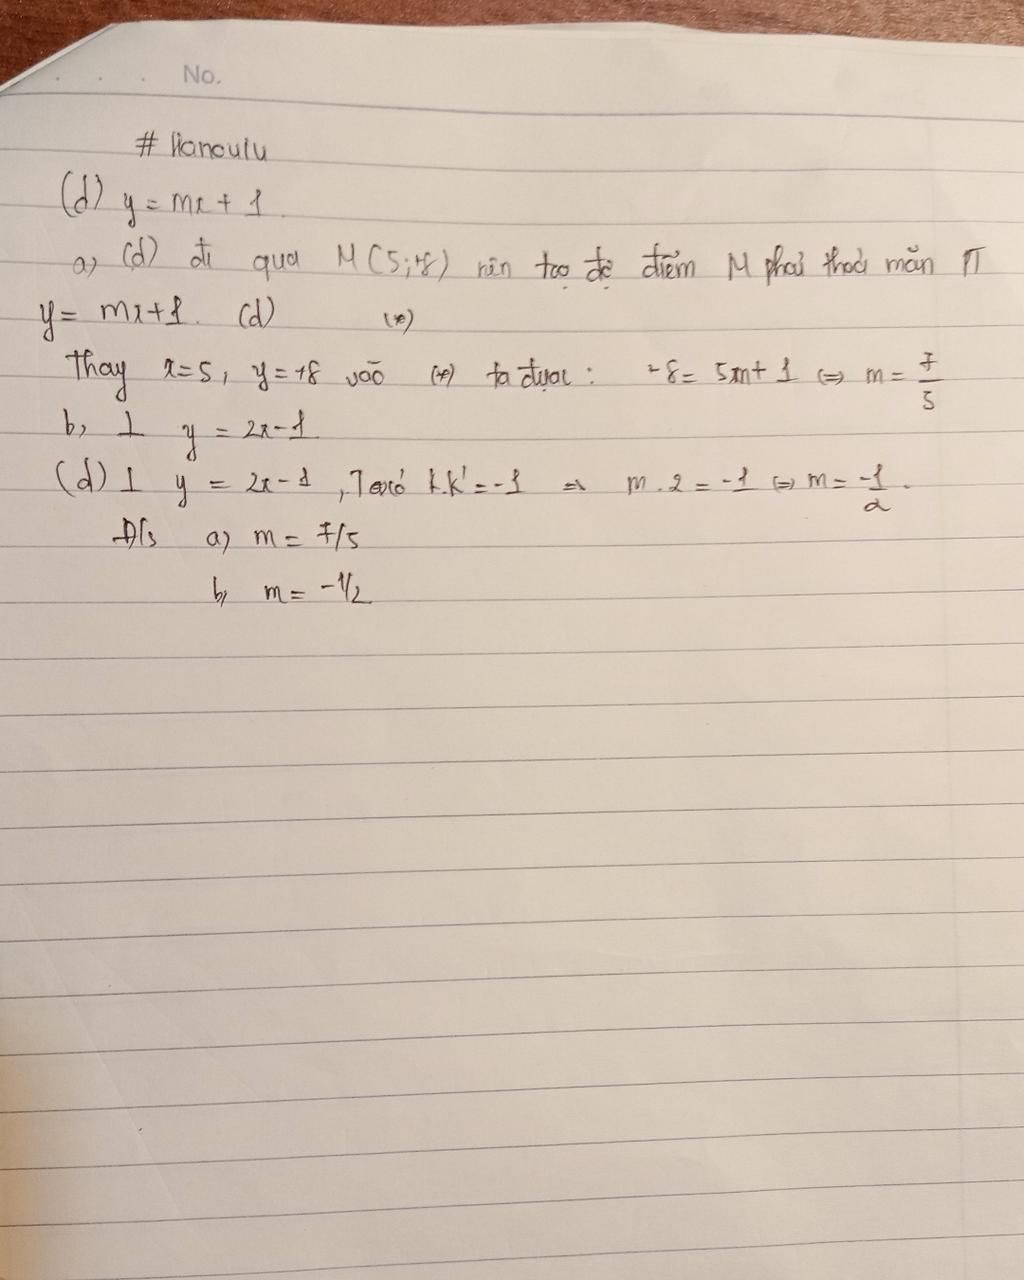 No.
# Hanoulu
(d) y = mx + 1
a, (d) đi qua M (5;+8) nên toạ độ điểm M phải thoả mãn PT
y = mx+1. (d) (*)
Thay x=5, y=+8 vào (*) ta được: +8= 5m+ 1 ⇔ m = 7/5
b, ⊥ y = 2x-1
(d) ⊥ y = 2x-1, Ta có k.k' = -1 ⇒ m.2 = -1 ⇔ m = -1/2.
Đ/s a) m = 7/5
b, m = -1/2